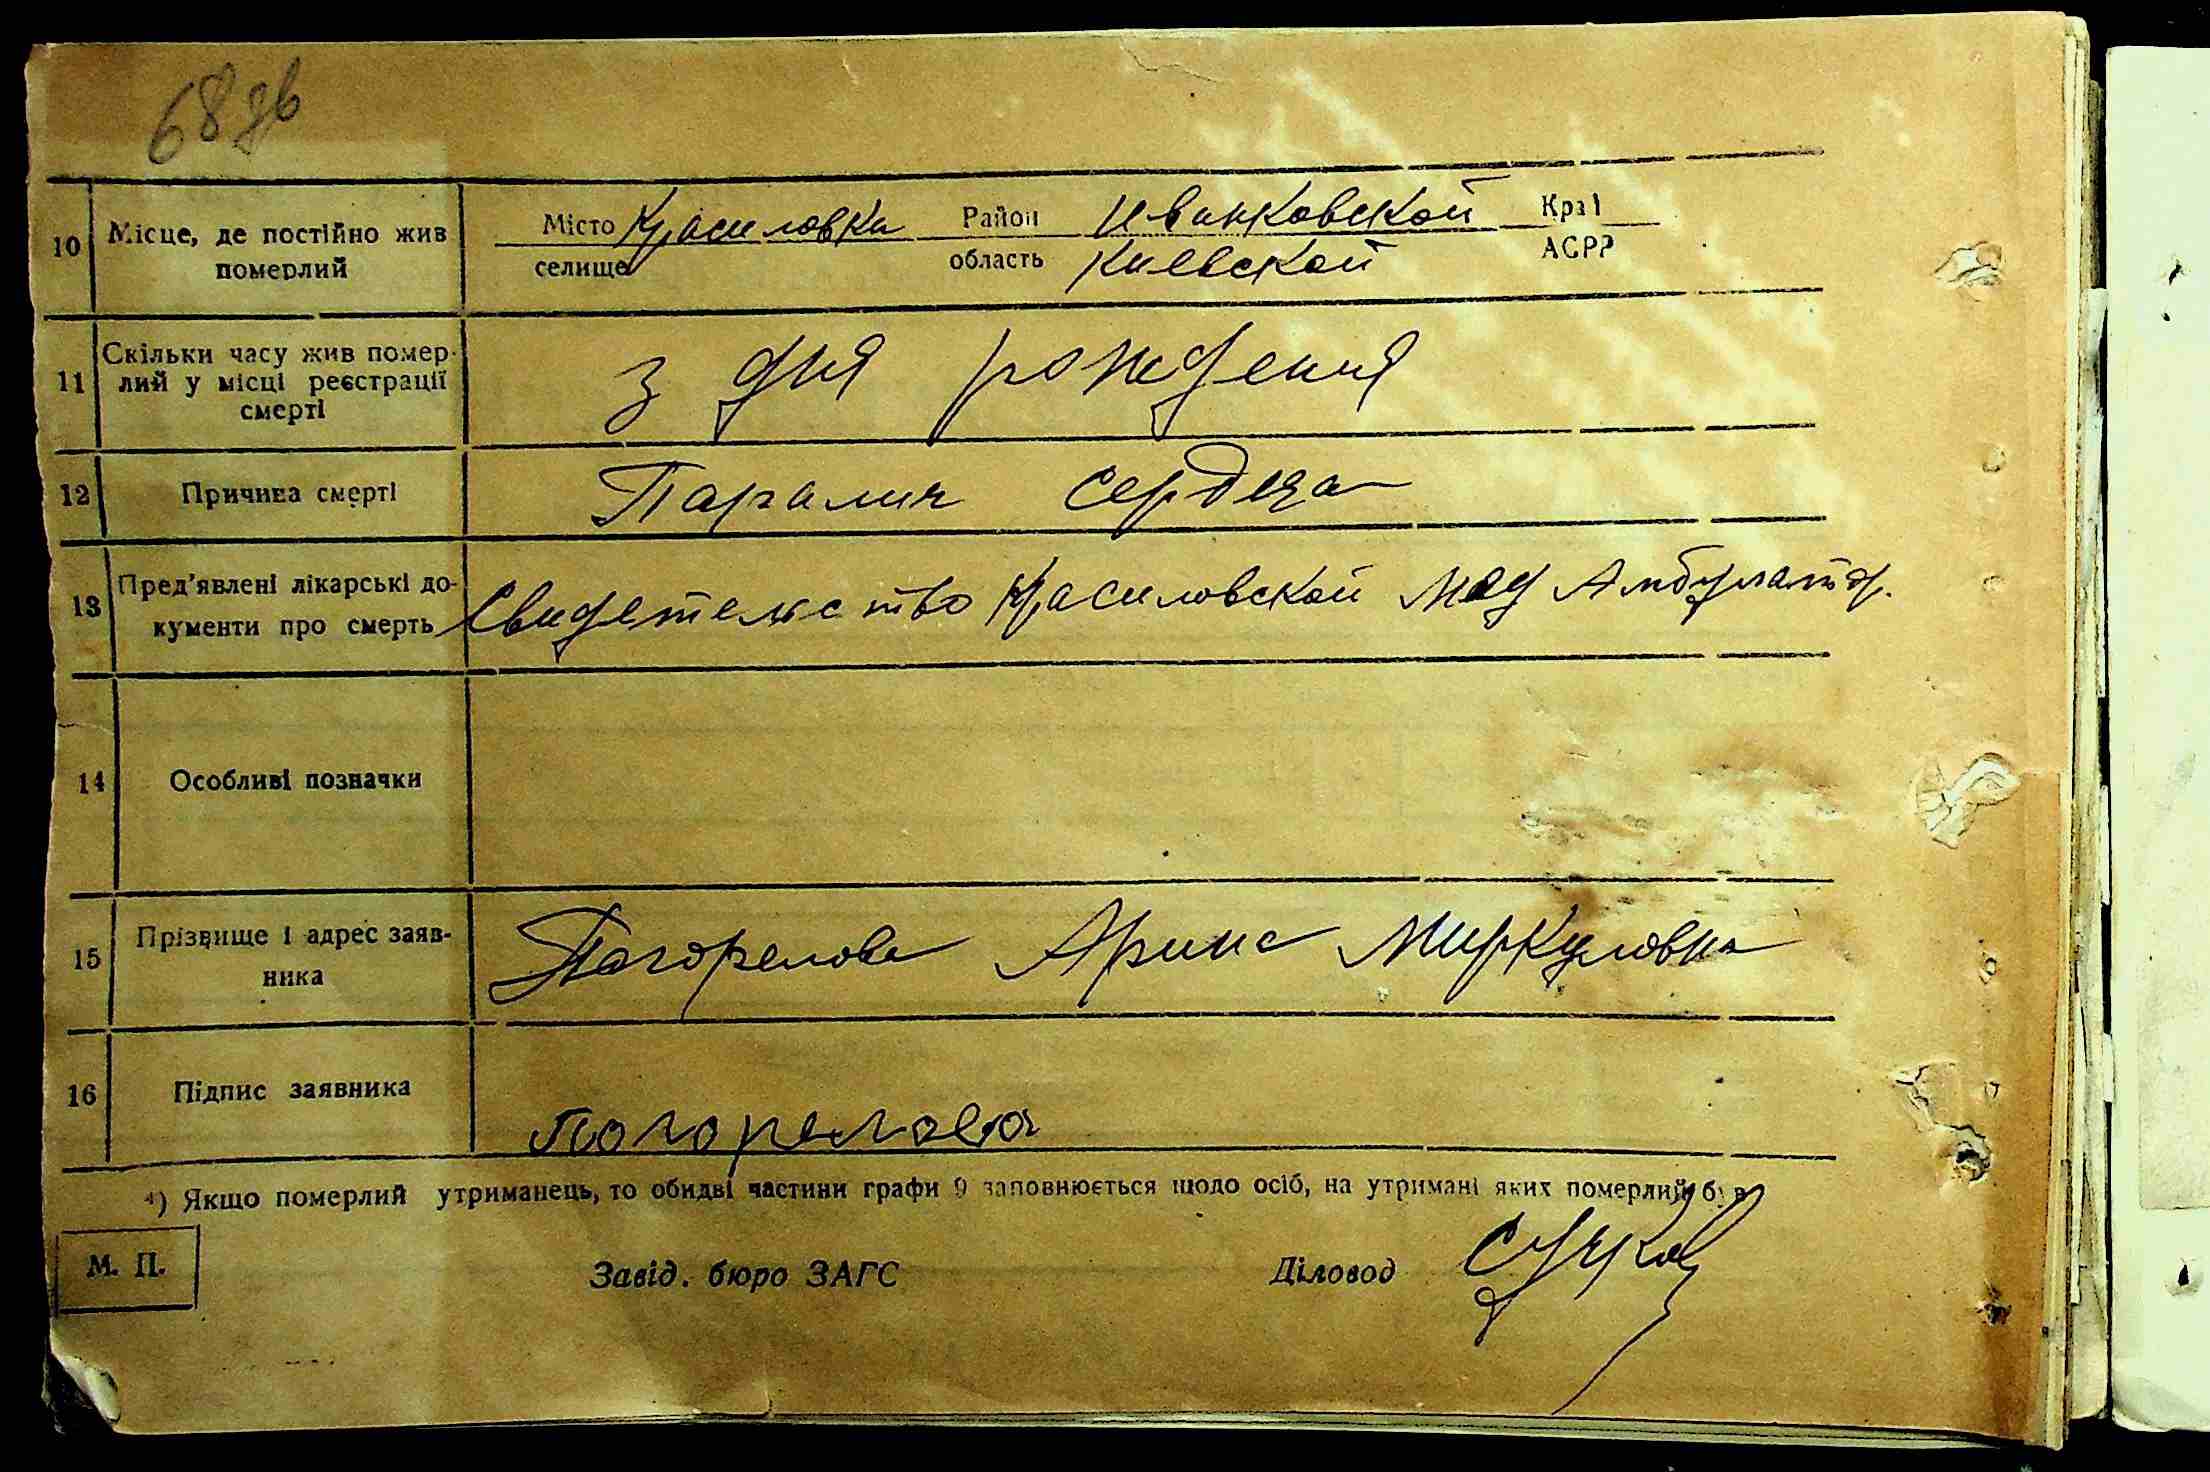 68 зв
10 Місце, де постійно жив померлий
Місто Красиловка Район Иванковской Край
селище область Киевской АСРР
11 Скільки часу жив помер-
лий у місці реєстрації
смерті
з дня рождения
12 Причина смерті Паралич сердца
13 Пред'явлені лікарські до-
кументи про смерть
Свидетельство Красиловской Мед Амбулатор.
14 Особливі позначки
15 Прізвище і адрес заяв-
ника
Погорелова Арина Миркуловна
16 Підпис заявника
Погорелова
*) Якщо померлий утриманець, то обидві частини графи 9 заповнюється щодо осіб, на утримані яких померлий був
М. П. Завід. бюро ЗАГС Діловод